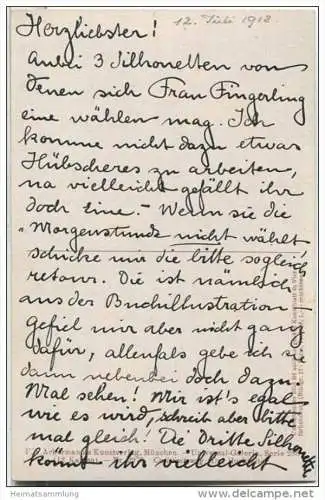 12. Juli 1912
Herzliebster!
Anbei 3 Silhouetten von
denen sich Frau Fingerling
eine wählen mag. Ich
komme nicht dazu etwas
Hübscheres zu arbeiten,
na vielleicht gefällt ihr
doch eine. – Wenn sie die
„Morgenstunde nicht wählt,
schicke mir die bitte sogleich
retour. Die ist nämlich
aus der Buchillustration
gefiel mir aber nicht ganz
dafür, allenfalls gebe ich sie
dann nebenbei doch dazu.
Mal sehen! Mir ist's egal
wie es wird, schreib aber bitte
mal gleich! Die dritte Silhouette
könnt ihr vielleicht
Ackermanns Kunstverlag, München
Universal-Galerie, Serie
www.heimatsammlung.de
Heimatsammlung